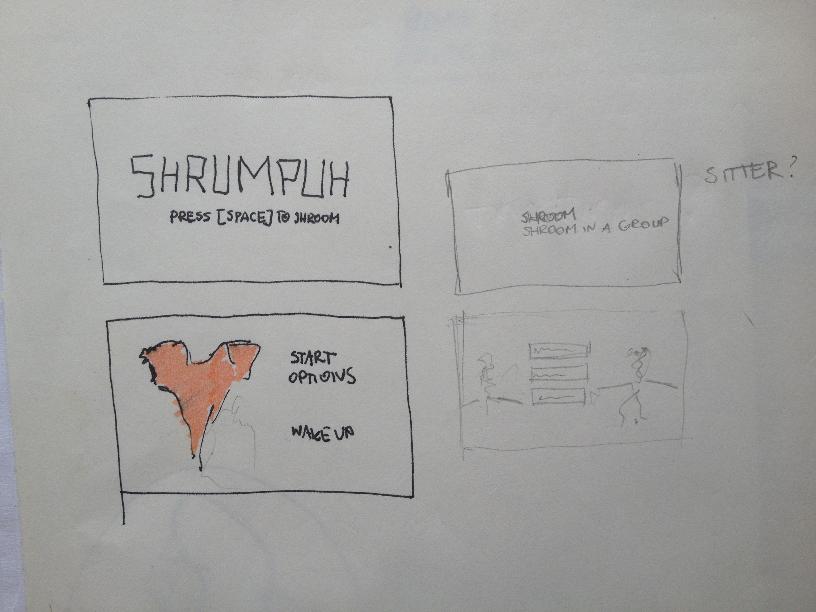 SHRUMPUH
PRESS [SPACE] TO SHROOM
SITTER?
SHROOM
SHROOM IN A GROUP
START
OPTIONS
WAKE UP